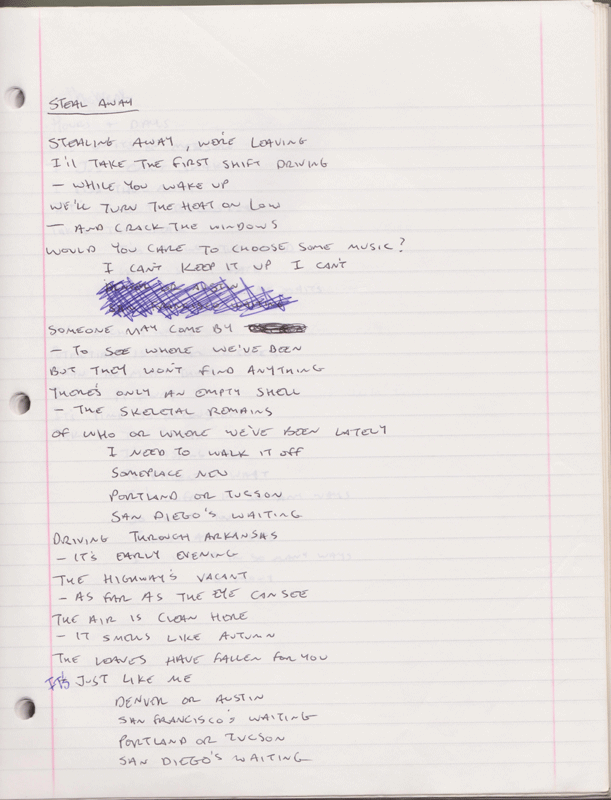 STEAL AWAY
STEALING AWAY, WE'RE LEAVING
I'll TAKE THE FIRST SHIFT DRIVING
- WHILE YOU WAKE UP
WE'LL TURN THE HEAT ON LOW
- AND CRACK THE WINDOWS
WOULD YOU CARE TO CHOOSE SOME MUSIC?
I CAN'T KEEP IT UP I CAN'T
SOMEONE MAY COME BY
- TO SEE WHERE WE'VE BEEN
BUT THEY WON'T FIND ANYTHING
THERE'S ONLY AN EMPTY SHELL
- THE SKELETAL REMAINS
OF WHO OR WHERE WE'VE BEEN LATELY
I NEED TO WALK IT OFF
SOMEPLACE NEW
PORTLAND OR TUCSON
SAN DIEGO'S WAITING
DRIVING THROUGH ARKANSAS
- IT'S EARLY EVENING
THE HIGHWAY'S VACANT
- AS FAR AS THE EYE CAN SEE
THE AIR IS CLEAN HERE
- IT SMELLS LIKE AUTUMN
THE LEAVES HAVE FALLEN FOR YOU
IT'S JUST LIKE ME
DENVER OR AUSTIN
SAN FRANCISCO'S WAITING
PORTLAND OR TUCSON
SAN DIEGO'S WAITING